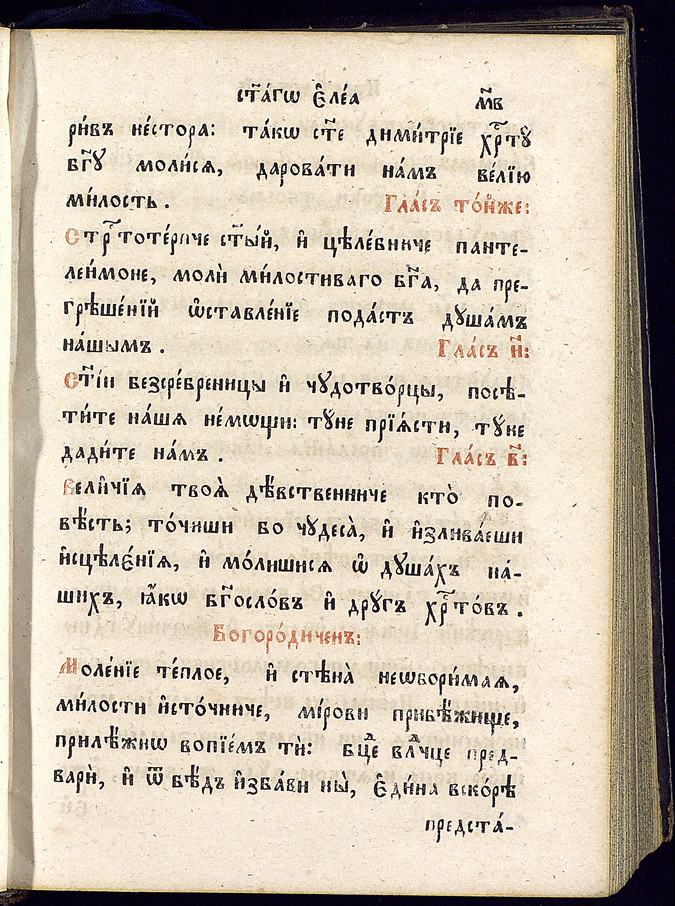 ст҃а́гѡ є҆ле́а м҃в
ри́въ не́стора: та́кѡ ст҃е дими́трїе хрⷭ҇ту̀
бг҃ꙋ моли́сѧ, дарова́ти на́мъ ве́лїю
ми́лость. Гла́съ то́йже:
Стрⷭ҇тоте́рпче ст҃ы́й, и҆ цѣле́бниче панте-
леи́моне, молѝ ми́лостиваго бг҃а, да пре-
грѣше́нїй ѡ҆ставле́нїе пода́стъ дꙋша́мъ
на́шымъ. Гла́съ и҃:
Ст҃і́и безсре́бреницы и҆ чꙋдотво́рцы, посѣ-
ти́те на́шѧ не́мѡщи: тꙋ́не прїѧ́сти, тꙋ́не
дади́те на́мъ. Гла́съ в҃:
Вели̑чїѧ твоѧ̑ дѣ́вственниче кто̀ по-
вѣ́сть; то́чиши бо чꙋдеса̀, и҆ и҆злива́еши
и҆сцѣлє́нїѧ, и҆ мо́лишисѧ ѡ҆ дꙋша́хъ на́-
шихъ, ꙗ҆́кѡ бг҃осло́въ и҆ дрꙋ́гъ хрⷭ҇то́въ.
Богоро́диченъ:
Моле́нїе те́плое, и҆ стѣна̀ неѡбори́маѧ,
ми́лости и҆сто́чниче, мі́рови прибѣ́жище,
прилѣ́жнѡ вопїе́мъ ти̑: бцⷣе влⷣчце пред-
варѝ, и҆ ѿ бѣ́дъ и҆зба́ви ны̀, є҆ди́на вско́рѣ
предста́-